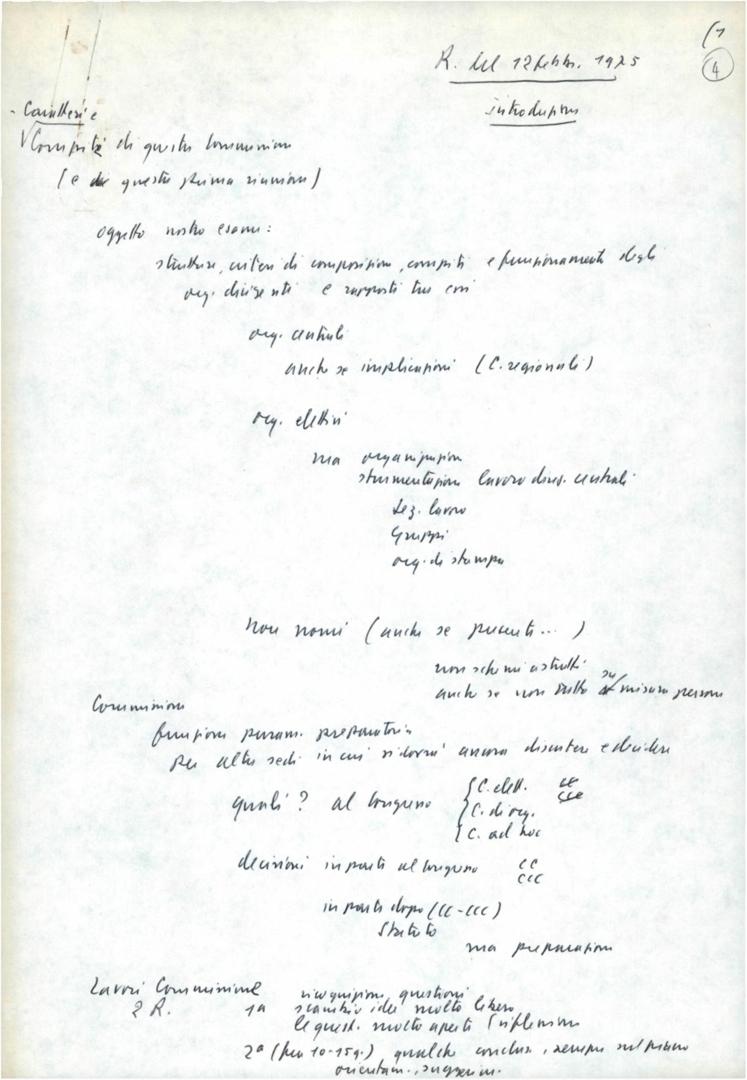 (1
4
R. del 12 febbr. 1975
introduzione
- Carattere e
Compiti di questa Commissione
(e di questa prima riunione)
oggetto nostro esame:
strutture, criteri di composizione, compiti e funzionamento degli
org. dirigenti e rapporti tra essi
org. centrali
anche se implicazioni (C. regionali)
org. elettivi
ma organizzazione
strumentazione lavoro direz. centrali
Sez. lavoro
Gruppi
org. di stampa
Non nomi (anche se presenti...)
non schemi astratti
anche se non tutto su misura persone
Commissione
funzione puram. preparatoria
per altre sedi in cui si dovrà ancora discutere e decidere
quali? al Congresso
C. elett. CC
CCC
C. di org.
C. ad hoc
decisioni in parte al Congresso CC
CCC
in parte dopo (CC-CCC)
Statuto
ma preparazione
Lavori Commissione
2 R.
1a ricognizione questioni
scambio idee molto libero
le quest. molto aperte (riflessione
2a (fra 10-15 g.) qualche conclus., sempre sul piano
orientam., suggerim.